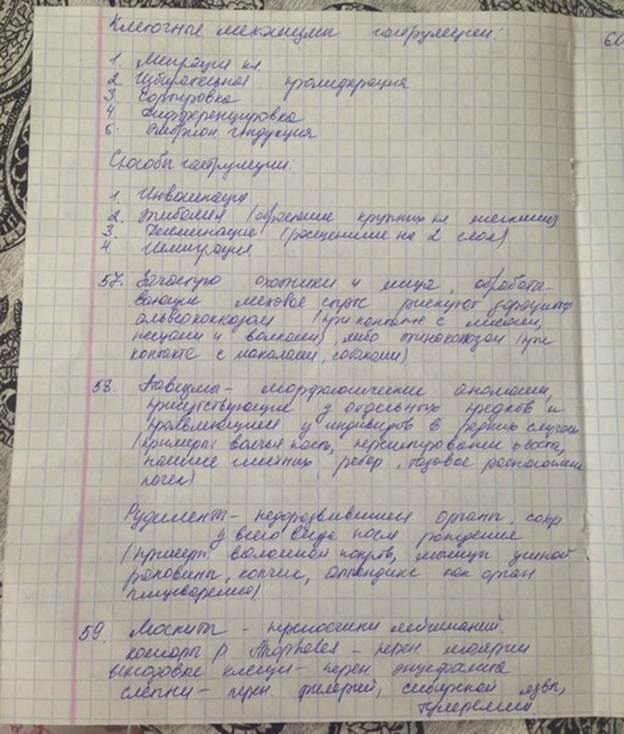 Клеточные механизмы гаструляции:
1. Миграция кл.
2. Избирательная пролиферация
3. Сортировка
4. Дифференцировка
5. Эмбрион индукция
Способы гаструляции:
1. Инвагинация
2. Эпиболия (обрастание крупных кл мелкими)
3. Деламинация (расщепление на 2 слоя)
4. Иммиграция.
57. Зачастую охотники и лица, обрабаты-
вающие меховое сырье рискуют заразиться
альвеококкозом (при контакте с лисами,
песцами и волками) либо эхинококкозом (при
контакте с шакалами, собаками)
58. Атавизмы - морфологические аномалии,
присутствующие у отдельных предков и
проявляющиеся у индивидов в редких случаях
(примеры: волчья пасть, персистирование хвоста,
наличие шейных ребер, тазовое расположение
почек)
Рудименты - недоразвившиеся органы, сохр
у всего вида после рождения
(пример: волосяной покров, мышцы ушной
раковины, копчик, аппендикс как орган
пищеварения).
59. Москиты - переносчики лейшманий.
комары р Anopheles - перен. малярии
иксодовые клещи - перен. энцефалита
слепни - перен. филярий, сибирской язвы,
туляремии
60